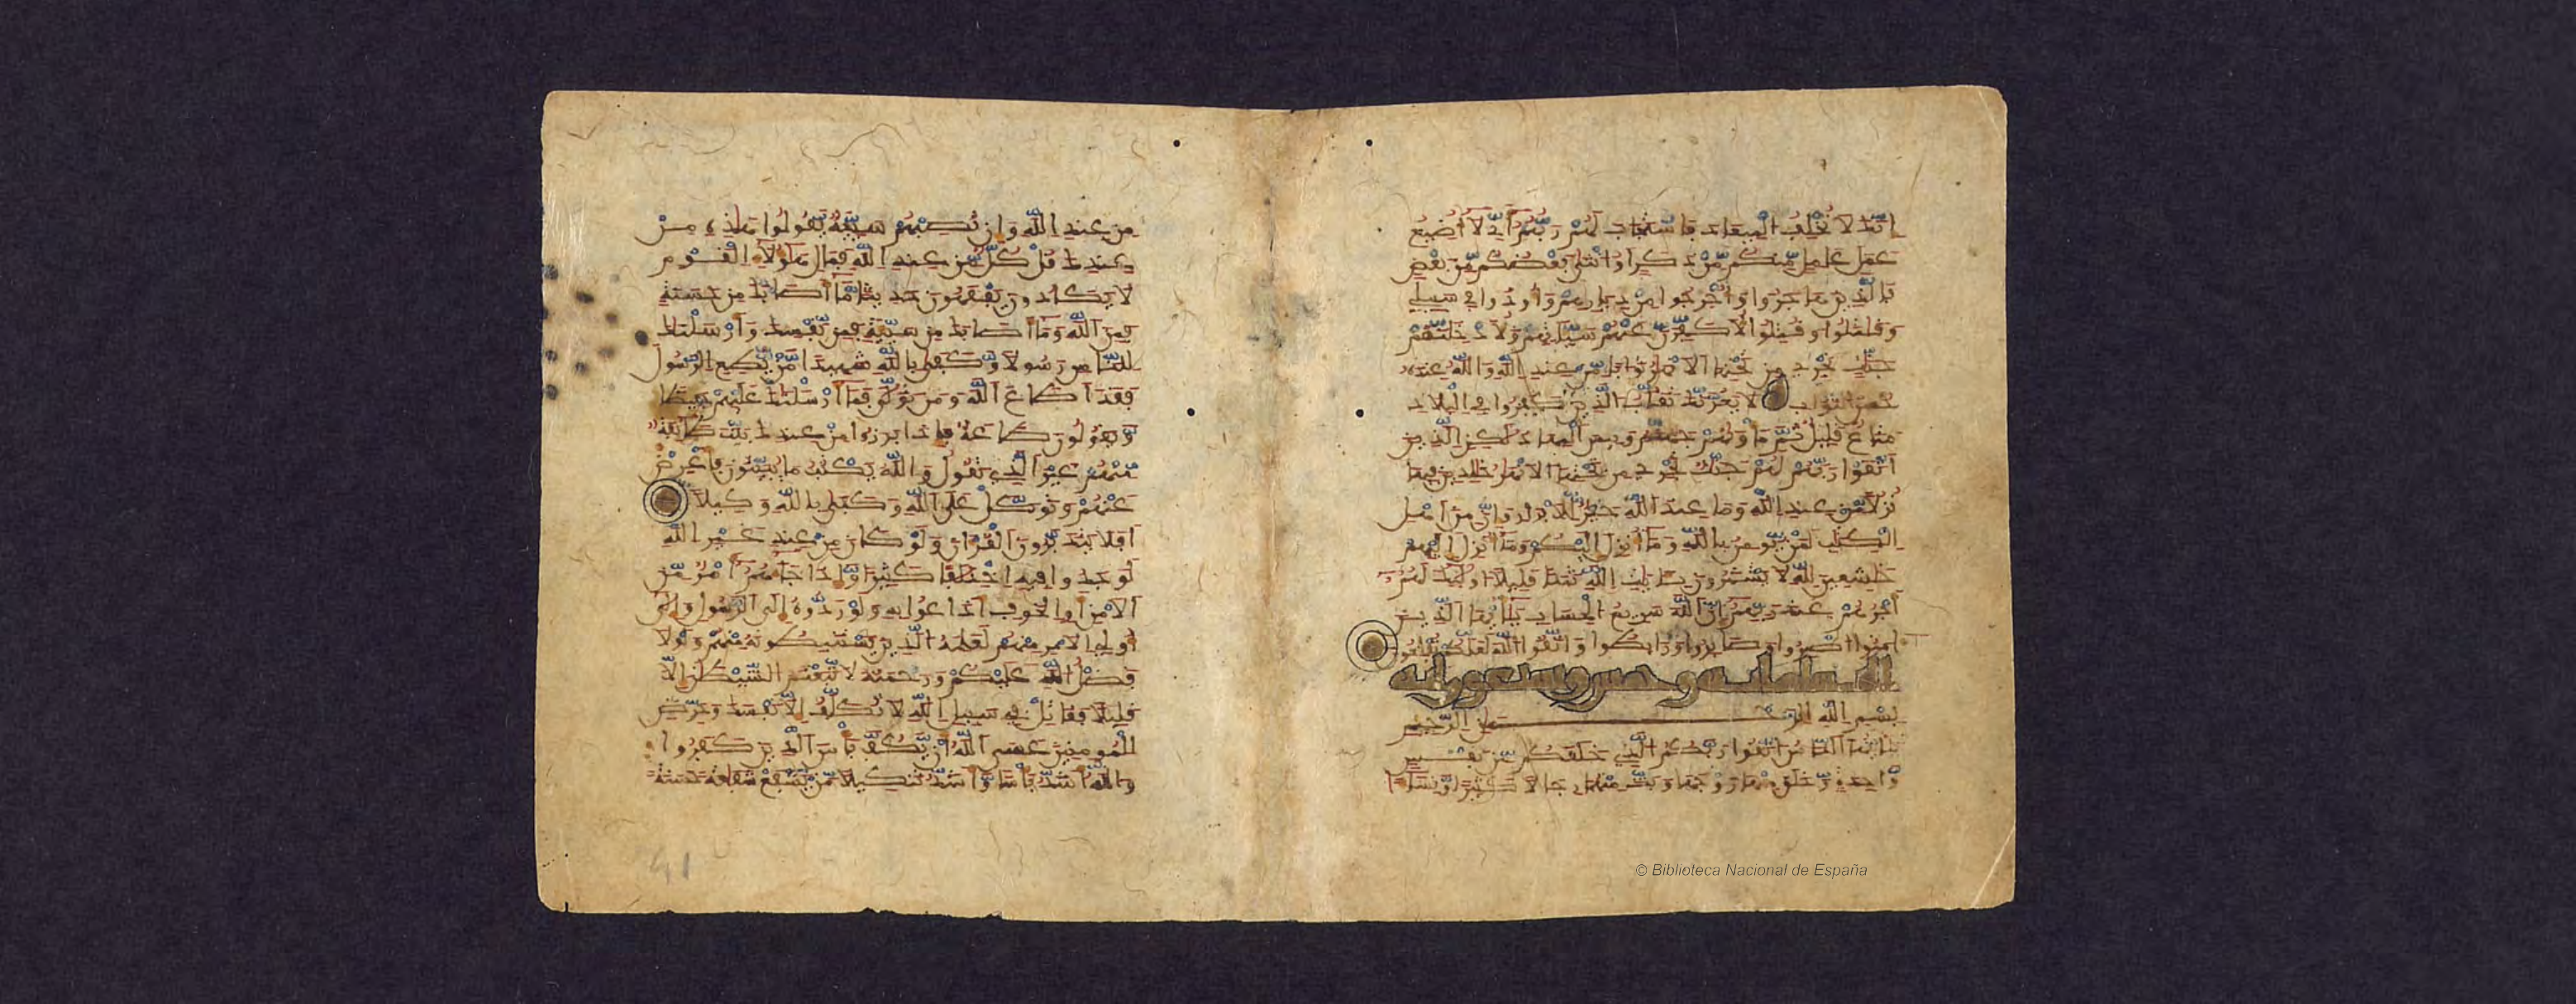 انك لا تخلف الميعاد فاستجاب لهم ربهم أني لا أضيع
عمل عمل منكم من ذكر أو انثى بعضكم من بعض
فالذين هاجروا وأخرجوا من ديرهم وأوذوا في سبيلي
وقتلوا وقتلوا لأكفرن عنهم سياتهم ولأدخلنهم
جنت تجري من تحتها الانهر ثوابا من عند الله والله عنده
حسن الثواب لا يغرنك تقلب الذين كفروا في البلد
متع قليل ثم مأويهم جهنم وبيس المهاد لكن الذين
اتقوا ربهم لهم جنت تجري من تحتها الانهر خلدين فيها
نزلا من عند الله وما عند الله خير للابرار وان من اهل
الكتب لمن يومن بالله وما أنزل اليكم وما أنزل اليهم
خشعين لله لا يشترون بايت الله ثمنا قليلا اوليك لهم
أجرهم عند ربهم ان الله سريع الحساب يأيها الذين
امنوا اصبروا وصابروا ورابطوا واتقوا الله لعلكم تفلحون
النسا مايه وخمس وسبعون ايه
بسم الله الرحمن الرحيم
يأيها الناس اتقوا ربكم الذي خلقكم من نفس
واحدة وخلق منها زوجها وبث منهما رجالا كثيرا ونساء
من عند الله وان تصبهم سيئة يقولوا هذه من
عندك قل كل من عند الله فمال هؤلاء القوم
لا يكادون يفقهون حديثا ما أصابك من حسنة
فمن الله وما أصابك من سيئة فمن نفسك وأرسلنك
للناس رسولا وكفى بالله شهيدا من يطع الرسول
فقد أطاع الله ومن تولى فما أرسلنك عليهم حفيظا
ويقولون طاعة فاذا برزوا من عندك بيت طايفة
منهم غير الذي تقول والله يكتب ما يبيتون فأعرض
عنهم وتوكل على الله وكفى بالله وكيلا
أفلا يتدبرون القرءان ولو كان من عند غير الله
لوجدوا فيه اختلفا كثيرا واذا جاءهم أمر من
الامن أو الخوف اذاعوا به ولو ردوه إلى الرسول والى
أولي الامر منهم لعلمه الذين يستنبطونه منهم ولولا
فضل الله عليكم ورحمته لاتبعتم الشيطن الا
قليلا فقاتل في سبيل الله لا تكلف الا نفسك وحرض
المومنين عسى الله أن يكف بأس الذين كفروا
والله أشد بأسا وأشد تنكيلا من يشفع شفعة حسنة
41
© Biblioteca Nacional de España